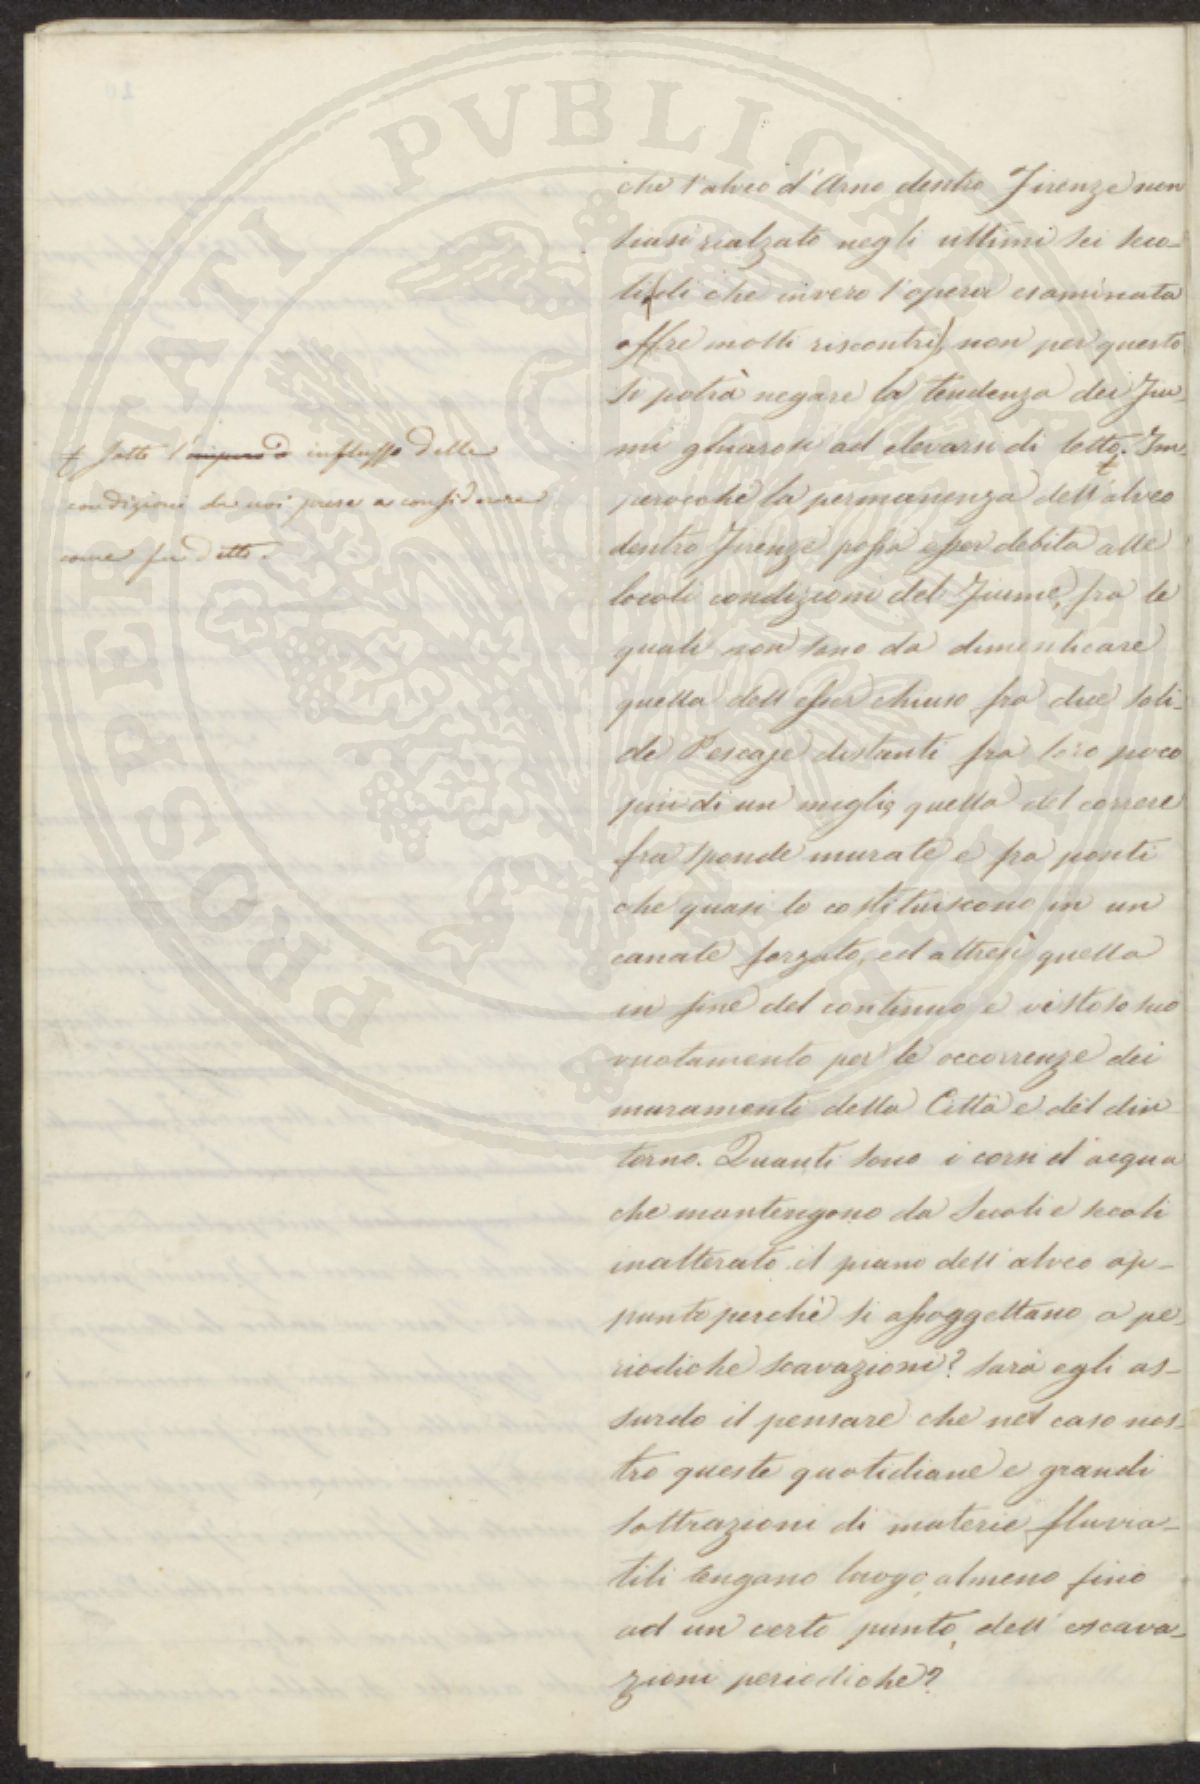 che l'alveo d'Arno dentro Firenze non
siasi rialzato negli ultimi sei seco-
li (di che invero l'opera esaminata
offre molti riscontri), non per questo
si potrà negare la tendenza dei Fiu-
mi ghiarosi ad elevarsi di letto. Im-
perocchè la permanenza dell'alveo
dentro Firenze possa esser debita alle
locali condizioni del Fiume, fra le
quali non sono da dimenticare
quella dell'esser chiuso fra due soli-
de Pescaje distanti fra loro poco
più di un miglio, quella del correre
fra sponde murate e fra ponti
che quasi lo costituiscono in un
canale forzato, ed altresì quella
in fine del continuo e vistoso suo
vuotamento per le occorrenze dei
muramenti della Città e del din
torno. Quanti sono i corsi d'acqua
che mantengono da secoli e secoli
inalterato il piano dell'alveo ap-
punto perchè si assoggettano a pe-
riodiche scavazioni? sarà egli as-
surdo il pensare che nel caso nos-
tro queste quotidiane e grandi
sottrazioni di materie fluvia-
tili tengano luogo, almeno fino
ad un certo punto, dell'escava-
zioni periodiche?
‡ sotto l' influsso delle
condizioni da noi prese a considerare
come fu detto.
PROSPERITATI PVBLICAE